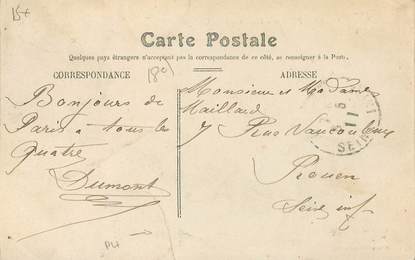 15+
Carte Postale
Quelques pays étrangers n'acceptant pas la correspondance de ce côté, se renseigner à la Poste.
CORRESPONDANCE
ADRESSE
Bonjours de
Paris a tous les
quatre
Dumont
Monsieur et Madame
Maillard
7 Rue Vaucouleurs
Rouen
Seine inf